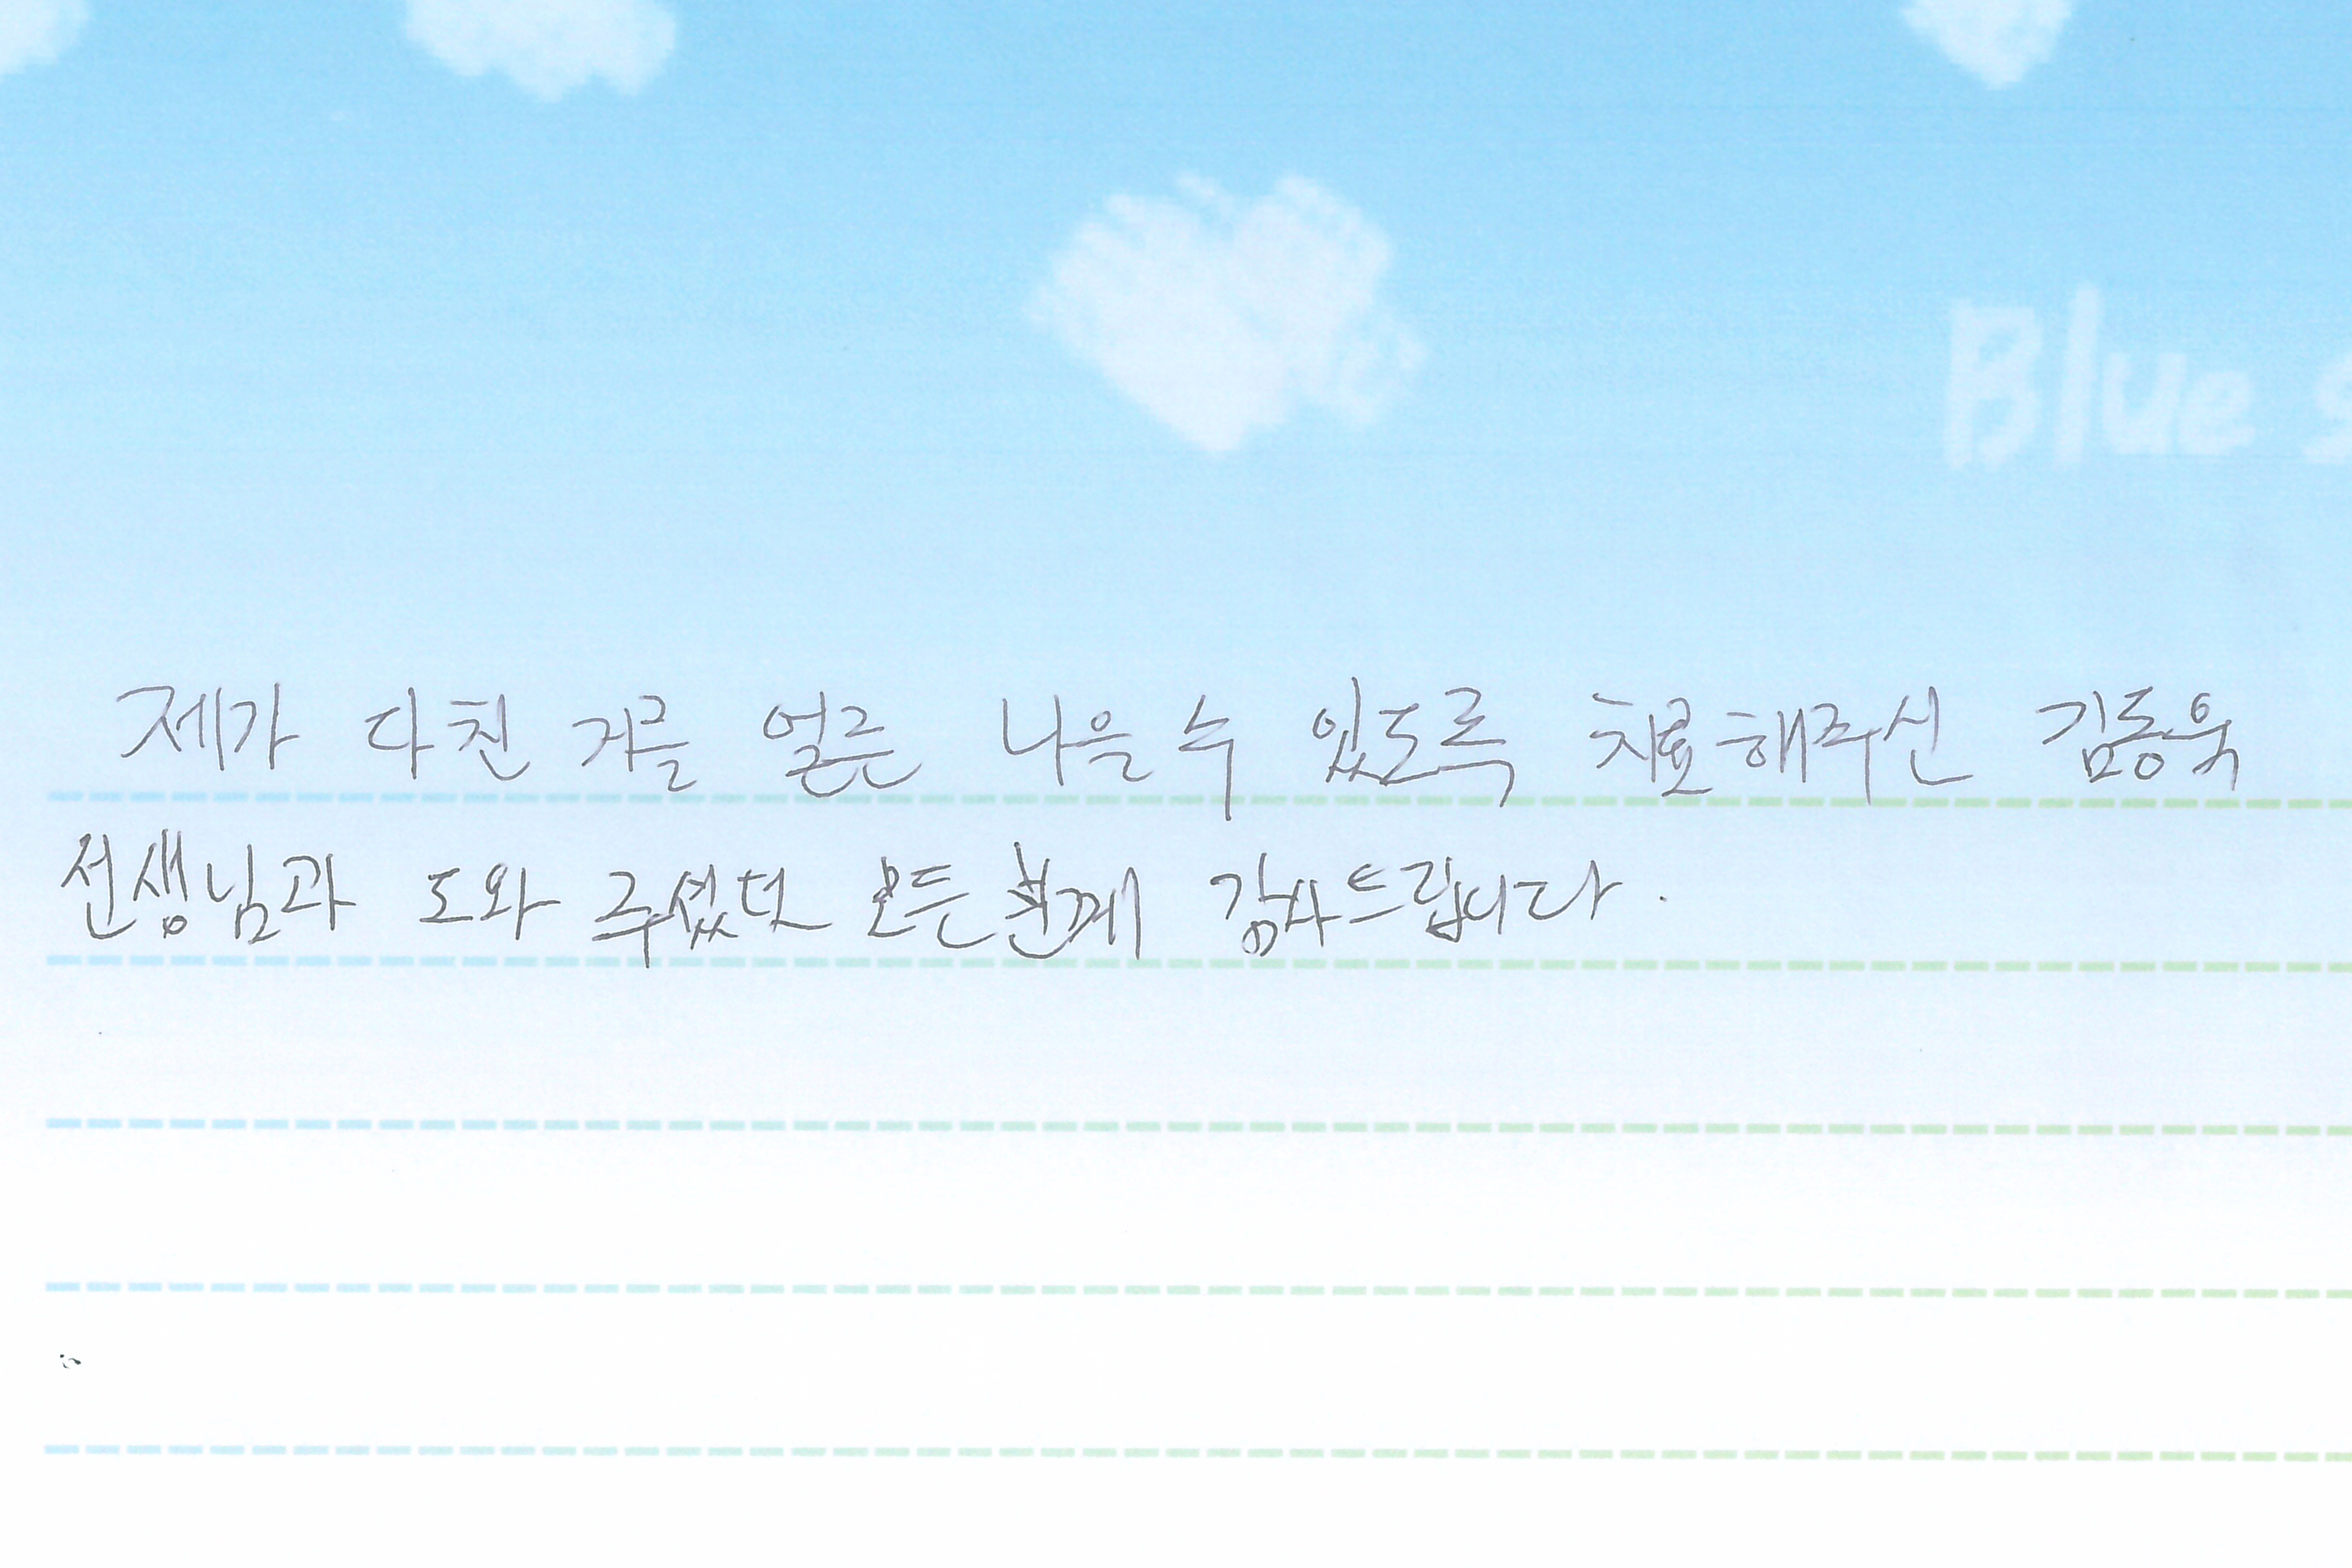 Blue s
제가 다친 거를 얼른 나을 수 있도록 치료해주신 김동욱
선생님과 도와 주셨던 모든분께 감사드립니다.